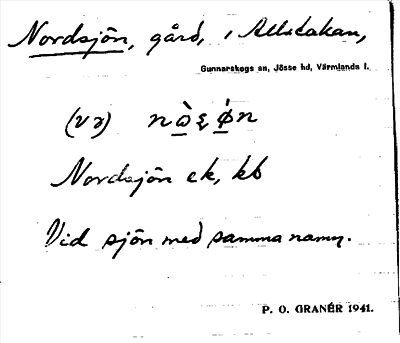 Nordsjön, gård, i Allstakan,
Gunnarskogs sn, Jösse hd, Värmlands l.
Nordsjön ek, kb
Vid sjön med samma namn.
P. O. GRANÉR 1941.